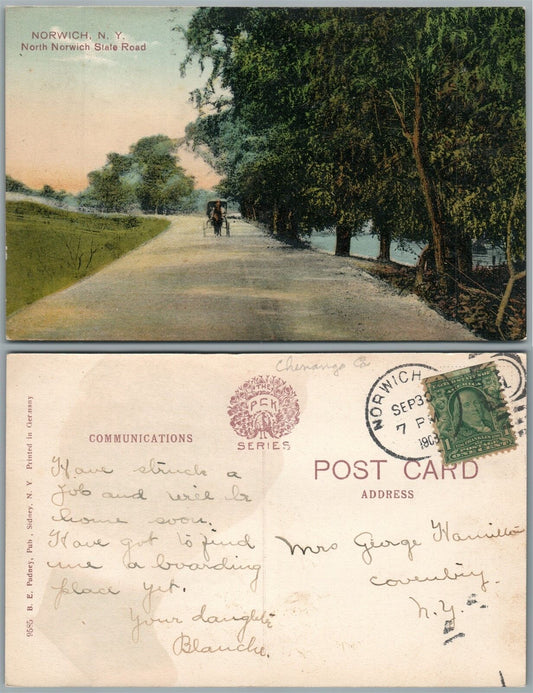 NORWICH, N. Y.
North Norwich State Road
Chenango Co
THE
PCK
SERIES
NORWICH
SEP 30
7 P
1908
COMMUNICATIONS
POST CARD
ADDRESS
9585 B. E. Pudney, Pub., Sidney, N. Y. Printed in Germany
Have struck a
Job and will be
home soon.
Have got to find
me a boarding
place yet.
Your daughter
Blanche.
Mrs George Hamilton
Coventry
N.Y.